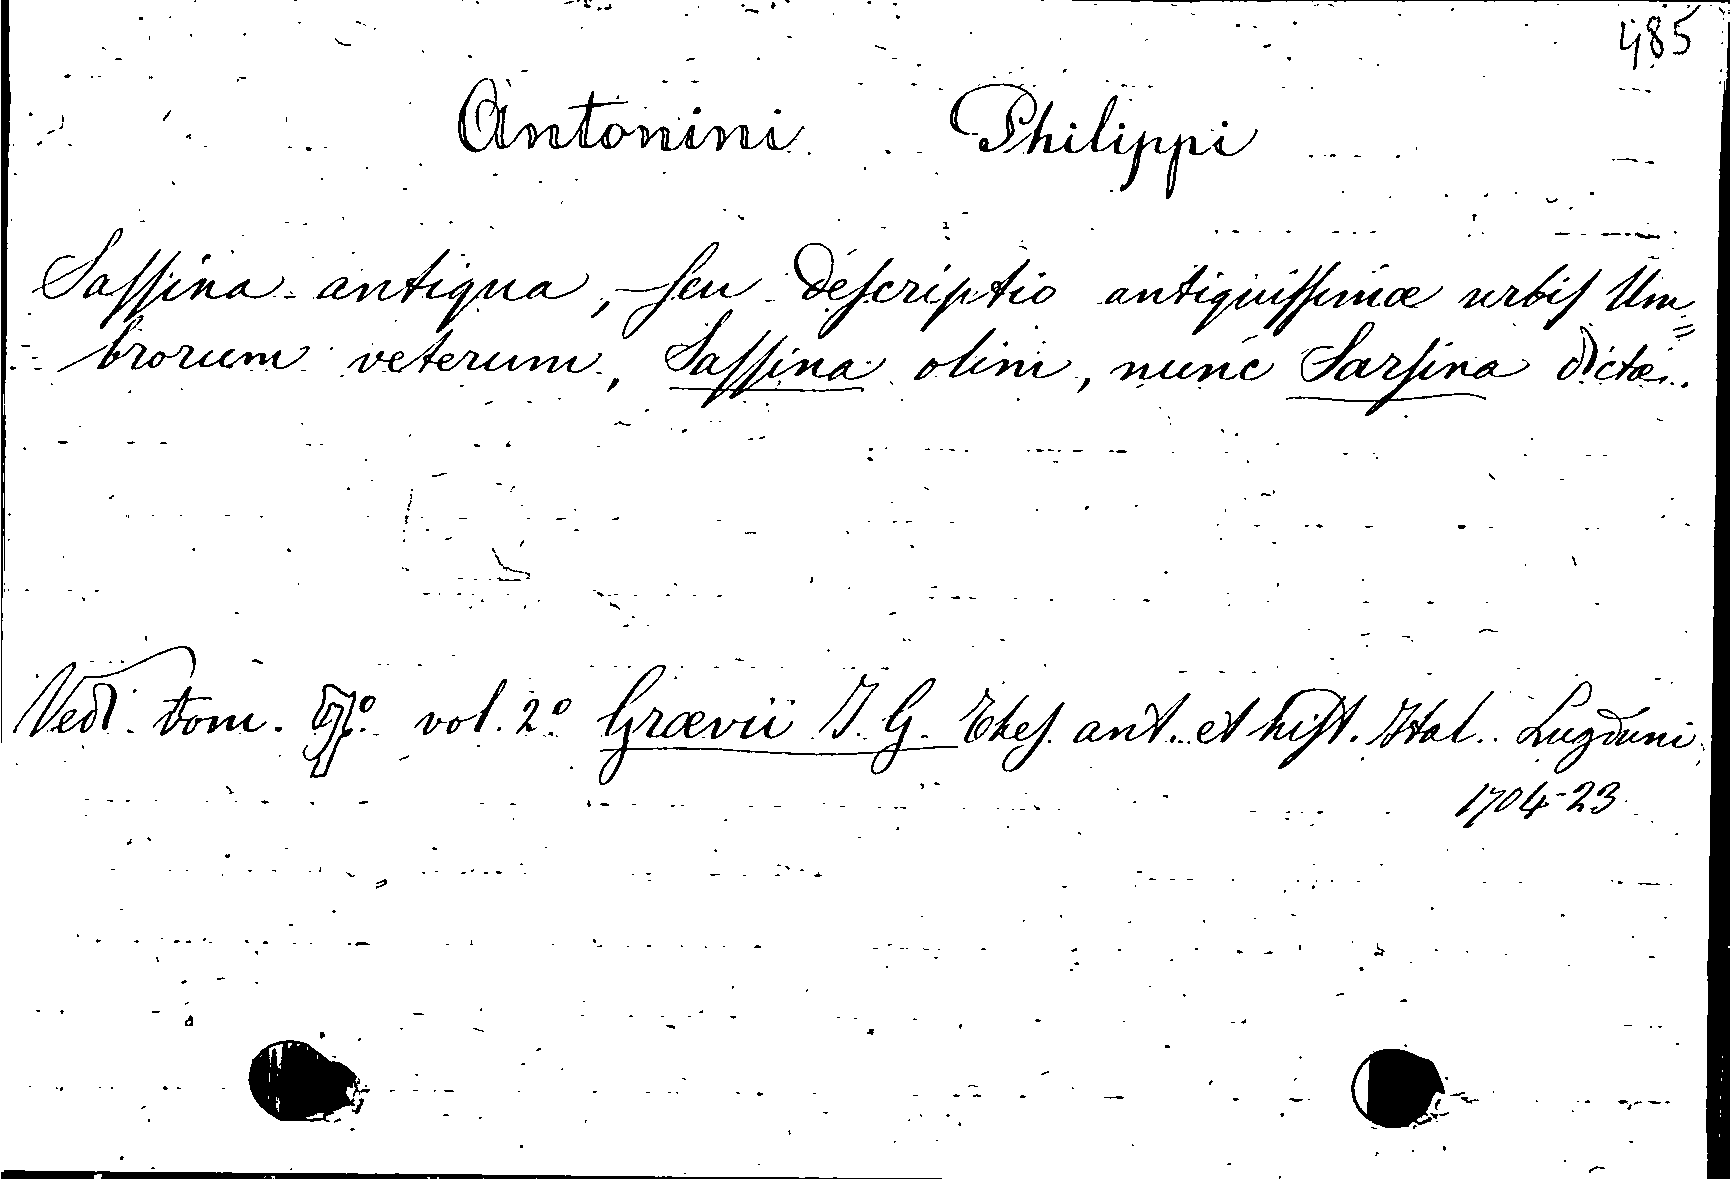 485
Antonini Philippi
Saſſina antiqua, ſeu deſcriptio antiquiſſimæ urbiſ Um=
brorum veterum, Saſſina olim, nunc Sarſina dictæ.
Vedi tom. vol. 2º Grævii J. G. Theſ. ant. et hiſt. Ital. Lugduni
1704-23